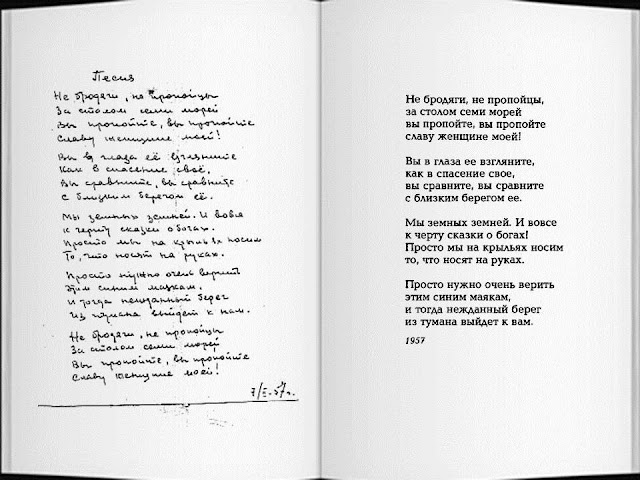 Песня
Не бродяги, не пропойцы
За столом семи морей
Вы пропойте, вы пропойте
Славу женщине моей!
Вы в глаза её взгляните
Как в спасение своё,
Вы сравните, вы сравните
С близким берегом её.
Мы земных земней. И вовсе
к черту сказки о богах.
Просто мы на крыльях носим
То, что носят на руках.
Просто нужно очень верить
Этим синим маякам.
И тогда нежданный берег
Из тумана выйдет к вам.
Не бродяги, не пропойцы
За столом семи морей
Вы пропойте, вы пропойте
Славу женщине моей!
57г.
Не бродяги, не пропойцы,
за столом семи морей
вы пропойте, вы пропойте
славу женщине моей!
Вы в глаза ее взгляните,
как в спасение свое,
вы сравните, вы сравните
с близким берегом ее.
Мы земных земней. И вовсе
к черту сказки о богах!
Просто мы на крыльях носим
то, что носят на руках.
Просто нужно очень верить
этим синим маякам,
и тогда нежданный берег
из тумана выйдет к вам.
1957